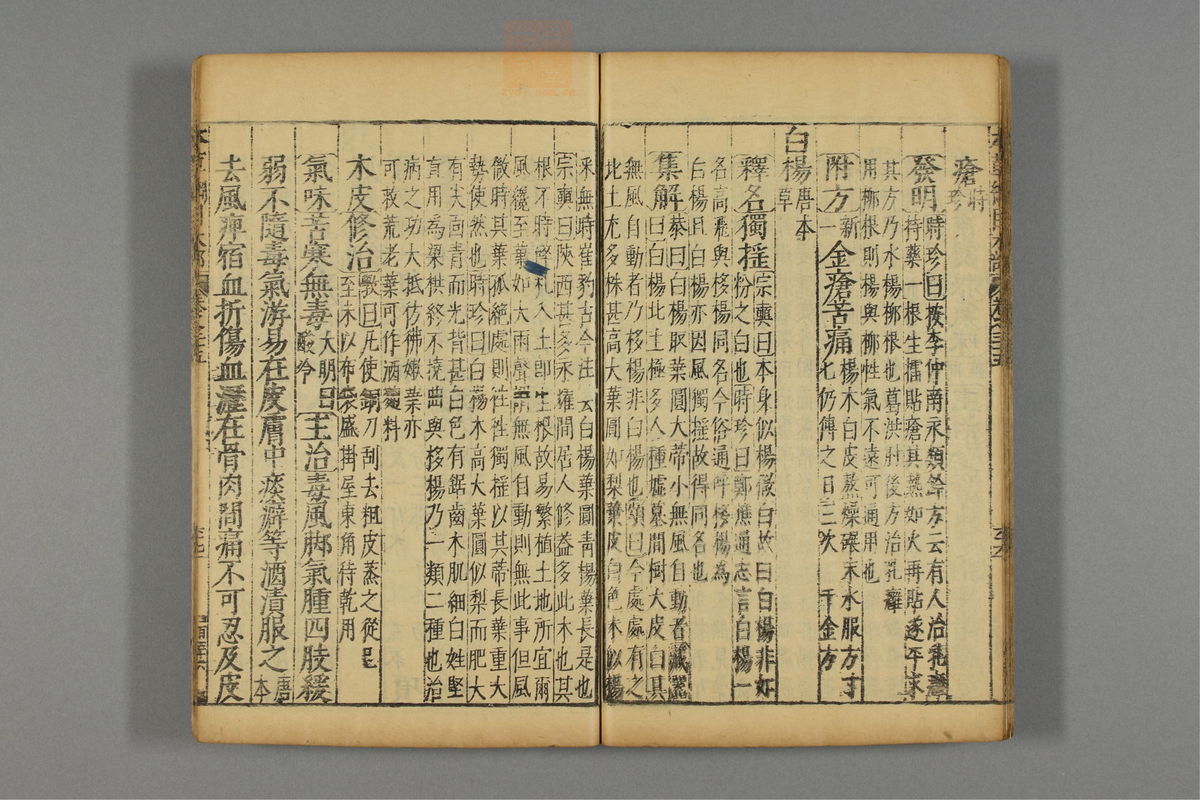 瘡時珍
發明時珍曰按李仲南永類鈐方云有人治乳癰
持藥一根生擂貼瘡其熱如火再貼遂平求
其方乃水楊柳根也葛洪肘後方治乳癰
用柳根則楊與柳性氣不遠可通用也
附方新一金瘡苦痛楊木白皮熬燥碾末水服方寸
匕仍傅之日三次 千金方
白楊唐本草
釋名獨搖宗奭曰木身似楊微白故曰白楊非如
粉之白也時珍曰鄭樵通志言白楊一
名高飛與栘楊同名今俗通呼栘楊為
白楊且白楊亦因風獨搖故得同名也
集解恭曰白楊取葉圓大蒂小無風自動者藏器
曰白楊北土極多人種墟墓間樹大皮白其
無風自動者乃栘楊非白楊也頌曰今處處有之
北土尤多株甚高大葉圓如梨葉皮白色木似楊
采無時崔豹古今注云白楊葉圓青楊葉長是也
宗奭曰陝西甚多永耀間居人修蓋多此木也其
根不時碎札入土即生根故易繁植土地所宜爾
風纔至葉如大雨聲謂無風自動則無此事但風
微時其葉孤絕處則往往獨搖以其蒂長葉重大
勢使然也時珍曰白楊木高大葉圓似梨而肥大
有尖面青而光背甚白色有鋸齒木肌細白性堅
直用為梁栱終不撓曲與栘楊乃一類二種也治
病之功大抵彷彿嫩葉亦
可救荒老葉可作酒麴料
木皮修治斅曰凡使銅刀刮去粗皮蒸之從巳
至未以布袋盛掛屋東角待乾用
氣味苦寒無毒大明曰酸冷主治毒風脚氣腫四肢緩
弱不隨毒氣游易在皮膚中痰癖等酒漬服之唐本
去風痺宿血折傷血瀝在骨肉間痛不可忍及皮